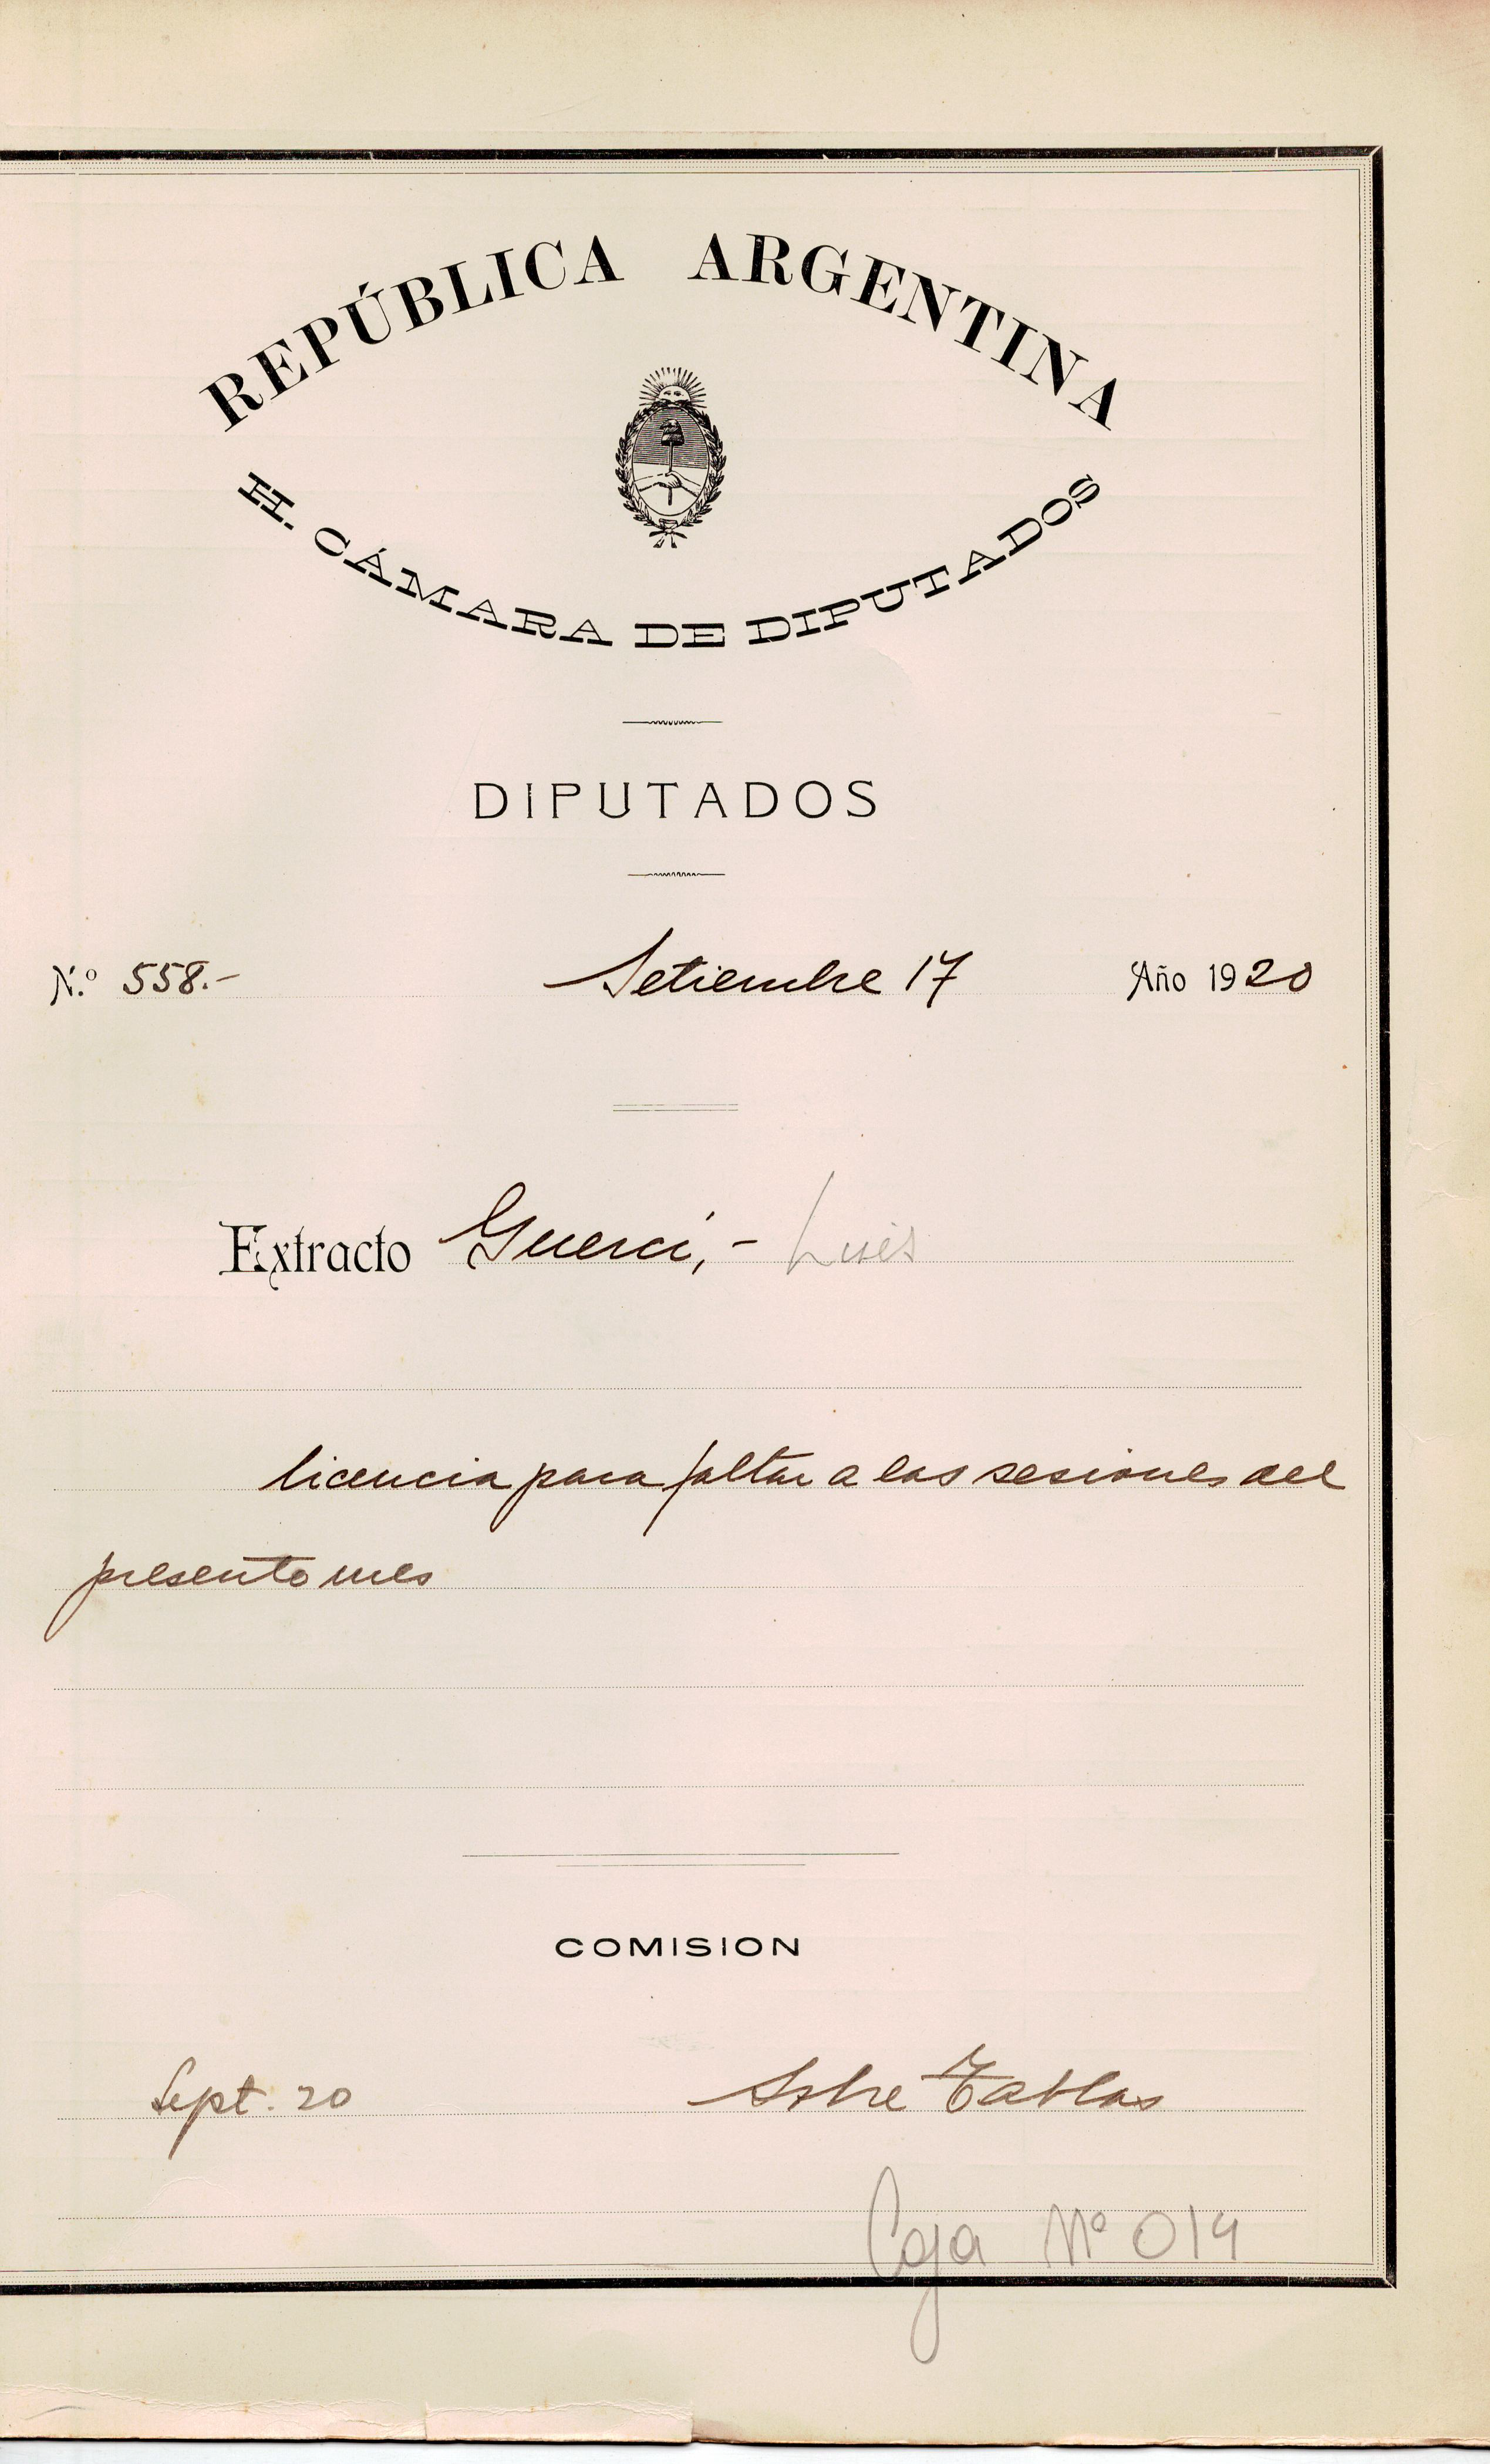 REPÚBLICA ARGENTINA
H. CÁMARA DE DIPUTADOS
DIPUTADOS
N.º 558.- Setiembre 17 Año 1920
Extracto Guerci,- Luis
licencia para faltar a las sesiones del
presente mes
COMISION
Sept. 20 Sobre Tablas
Caja Nº 014